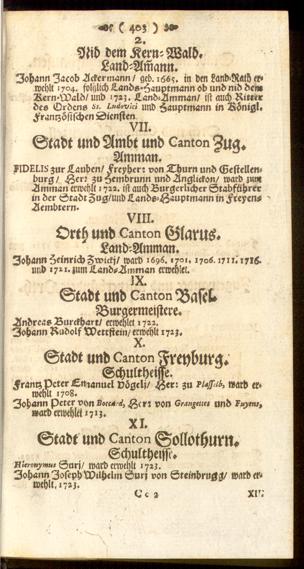 ( 403 )
2.
Nid dem Kern-Wald.
Land-Amann.
Johann Jacob Ackermann / geb. 1665. in den Land-Rath er-
wehlt 1704. folglich Lands-Hauptmann ob und nid dem
Kern-Wald / und 1723. Land-Amman / ist auch Ritter
des Ordens St. Ludovici und Hauptmann in Königl.
Französischen Diensten.
VII.
Stadt und Ambt und Canton Zug.
Amman.
FIDELIS zur Lauben / Freyherr von Thurn und Gestellen-
burg / Herr zu Hembrunn und Anglickon / ward zum
Amman erwehlt 1722. ist auch Burgerlicher Stabführer
in der Stadt Zug / und Lands-Hauptmann in Freyen-
Aembtern.
VIII.
Orth und Canton Glarus.
Land-Amman.
Johann Heinrich Zwicki / ward 1696. 1701. 1706. 1711. 1716.
und 1721. zum Land-Amman erwehlet.
IX.
Stadt und Canton Basel.
Burgermeistere.
Andreas Burckhart / erwehlet 1722.
Johann Rudolf Wettstein / erwehlet 1723.
X.
Stadt und Canton Freyburg.
Schultheisse.
Frantz Peter Emanuel Vögeli / Herr zu ward er-
wehlt 1708.
Johann Peter von Boccard, Herr von Grangettes und Fuyens,
ward erwehlet 1713.
XI.
Stadt und Canton Sollothurn.
Schultheisse.
Hieronymus Suri / ward erwehlet 1723.
Johann Joseph Wilhelm Suri von Steinbrugg / ward er-
wehlt, 1723.
Cc 2 XII.